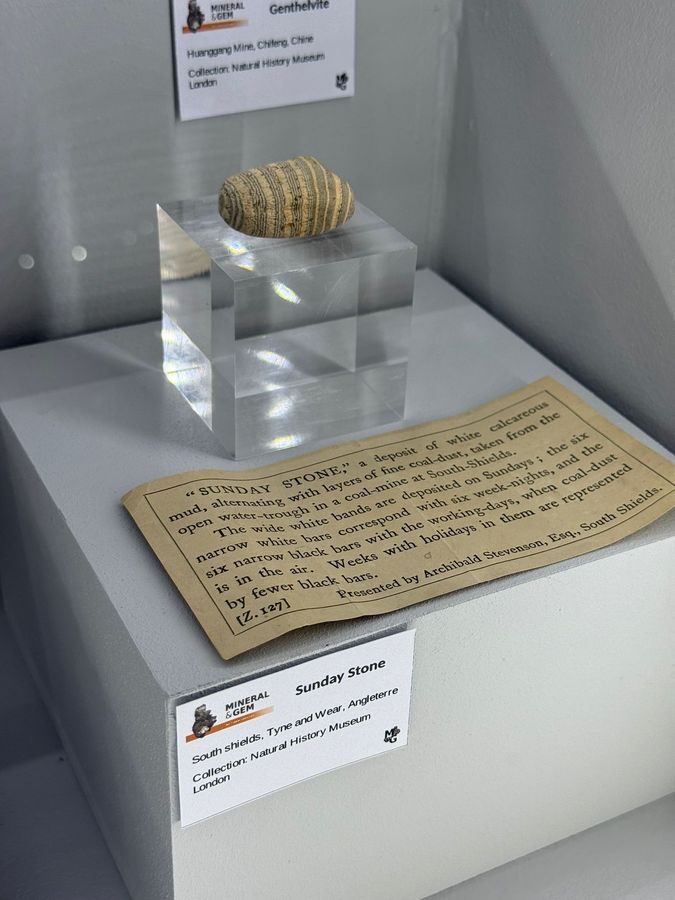 MINERAL
&GEM
Genthelvite
Huanggang Mine, Chifeng, Chine
Collection: Natural History Museum
London
"SUNDAY STONE," a deposit of white calcareous
mud, alternating with layers of fine coal-dust, taken from the
open water-trough in a coal-mine at South-Shields.
The wide white bands are deposited on Sundays; the six
narrow white bars correspond with six week-nights, and the
six narrow black bars with the working-days, when coal-dust
is in the air. Weeks with holidays in them are represented
by fewer black bars.
[Z. 127] Presented by Archibald Stevenson, Esq, South Shields.
MINERAL
&GEM
Sunday Stone
South shields, Tyne and Wear, Angleterre
Collection: Natural History Museum
London